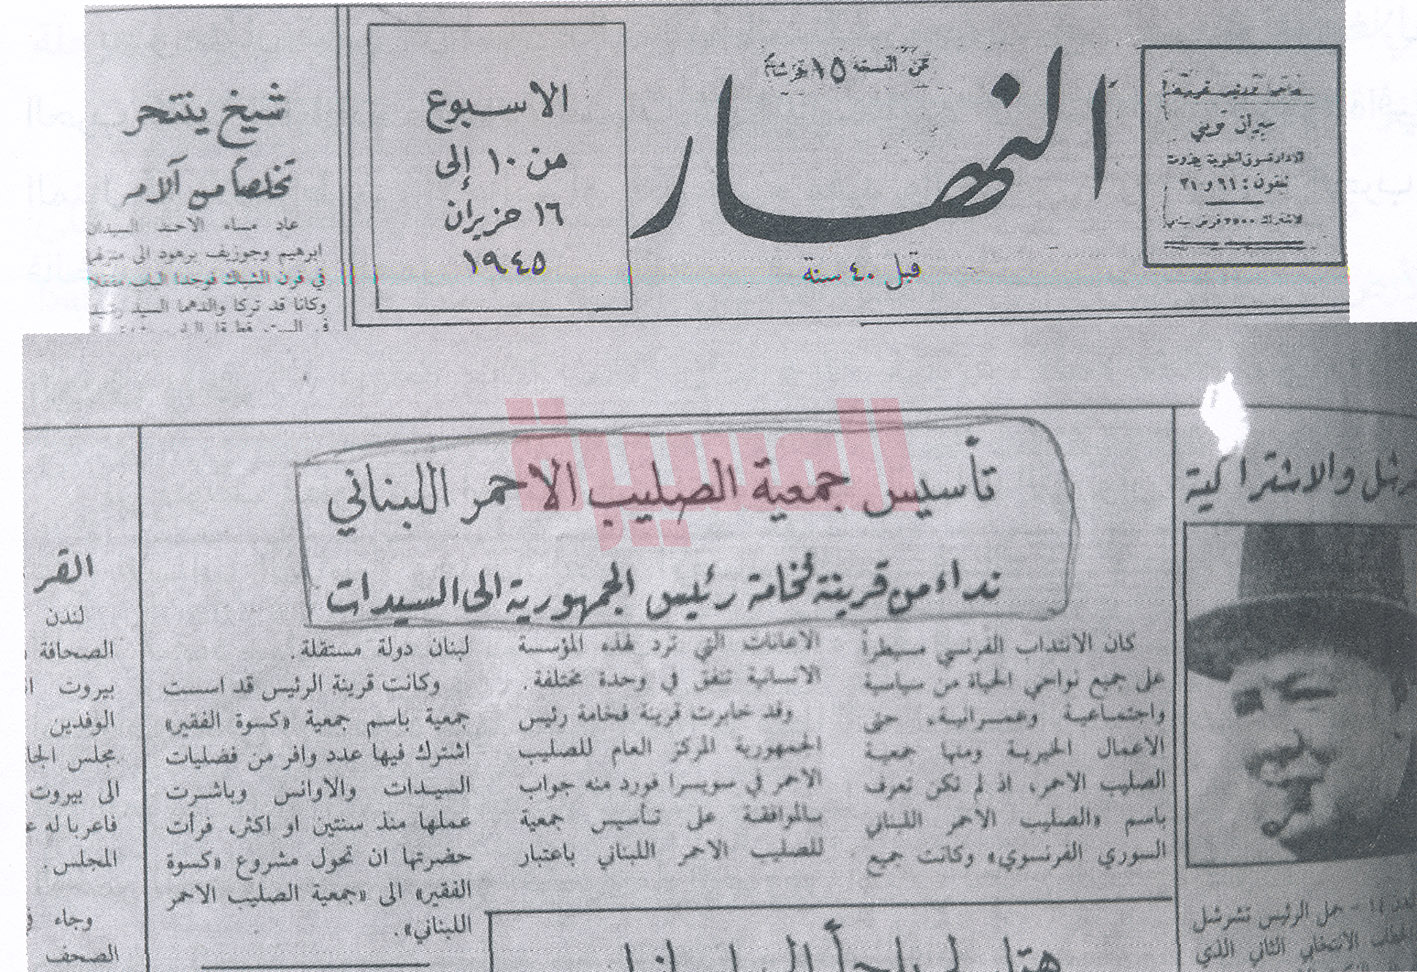 ثمن النسخة ١٥ قرشاً
النهار
قبل ٤٠ سنة
جبران تويني
تلفون : ٦١ و ٢١
الاسبوع
من ١٠ إلى
١٦ حزيران
١٩٤٥
شيخ ينتحر
تخلصاً من آلامه
عاد مساء الاحد السيدان
ابرهيم وجوزيف برهود الى منزلهما
في فرن الشباك فوجدا الباب مقفلا
وكانا قد تركا والدهما السيد
المسيرة
تأسيس جمعية الصليب الاحمر اللبناني
نداء من قرينة فخامة رئيس الجمهورية الى السيدات
كان الانتداب الفرنسي مسيطراً
على جميع نواحي الحياة من سياسية
واجتماعية وعمرانية، حتى
الاعمال الخيرية ومنها جمعية
الصليب الاحمر، اذ لم تكن تعرف
باسم «الصليب الاحمر اللبناني
السوري الفرنسوي» وكانت جميع
الاعانات التي ترد لهذه المؤسسة
الانسانية تنفق في وحدة مختلفة.
وقد خابرت قرينة فخامة رئيس
الجمهورية المركز العام للصليب
الاحمر في سويسرا فورد منه جواب
بالموافقة على تأسيس جمعية
للصليب الاحمر اللبناني باعتبار
لبنان دولة مستقلة.
وكانت قرينة الرئيس قد اسست
جمعية باسم جمعية «كسوة الفقير»
اشترك فيها عدد وافر من فضليات
السيدات والاوانس وباشرت
عملها منذ سنتين او اكثر، فرأت
حضرتها ان تحول مشروع «كسوة
الفقير» الى «جمعية الصليب الاحمر
اللبناني».
رشل والاشتراكية
حمل الرئيس تشرشل
الانتخابي الثاني الذي
القر
لندن
الصحافة
بيروت
الوفدين
مجلس الجا
الى بيروت
فاعربا له
المجلس.
وجاء
الصحف